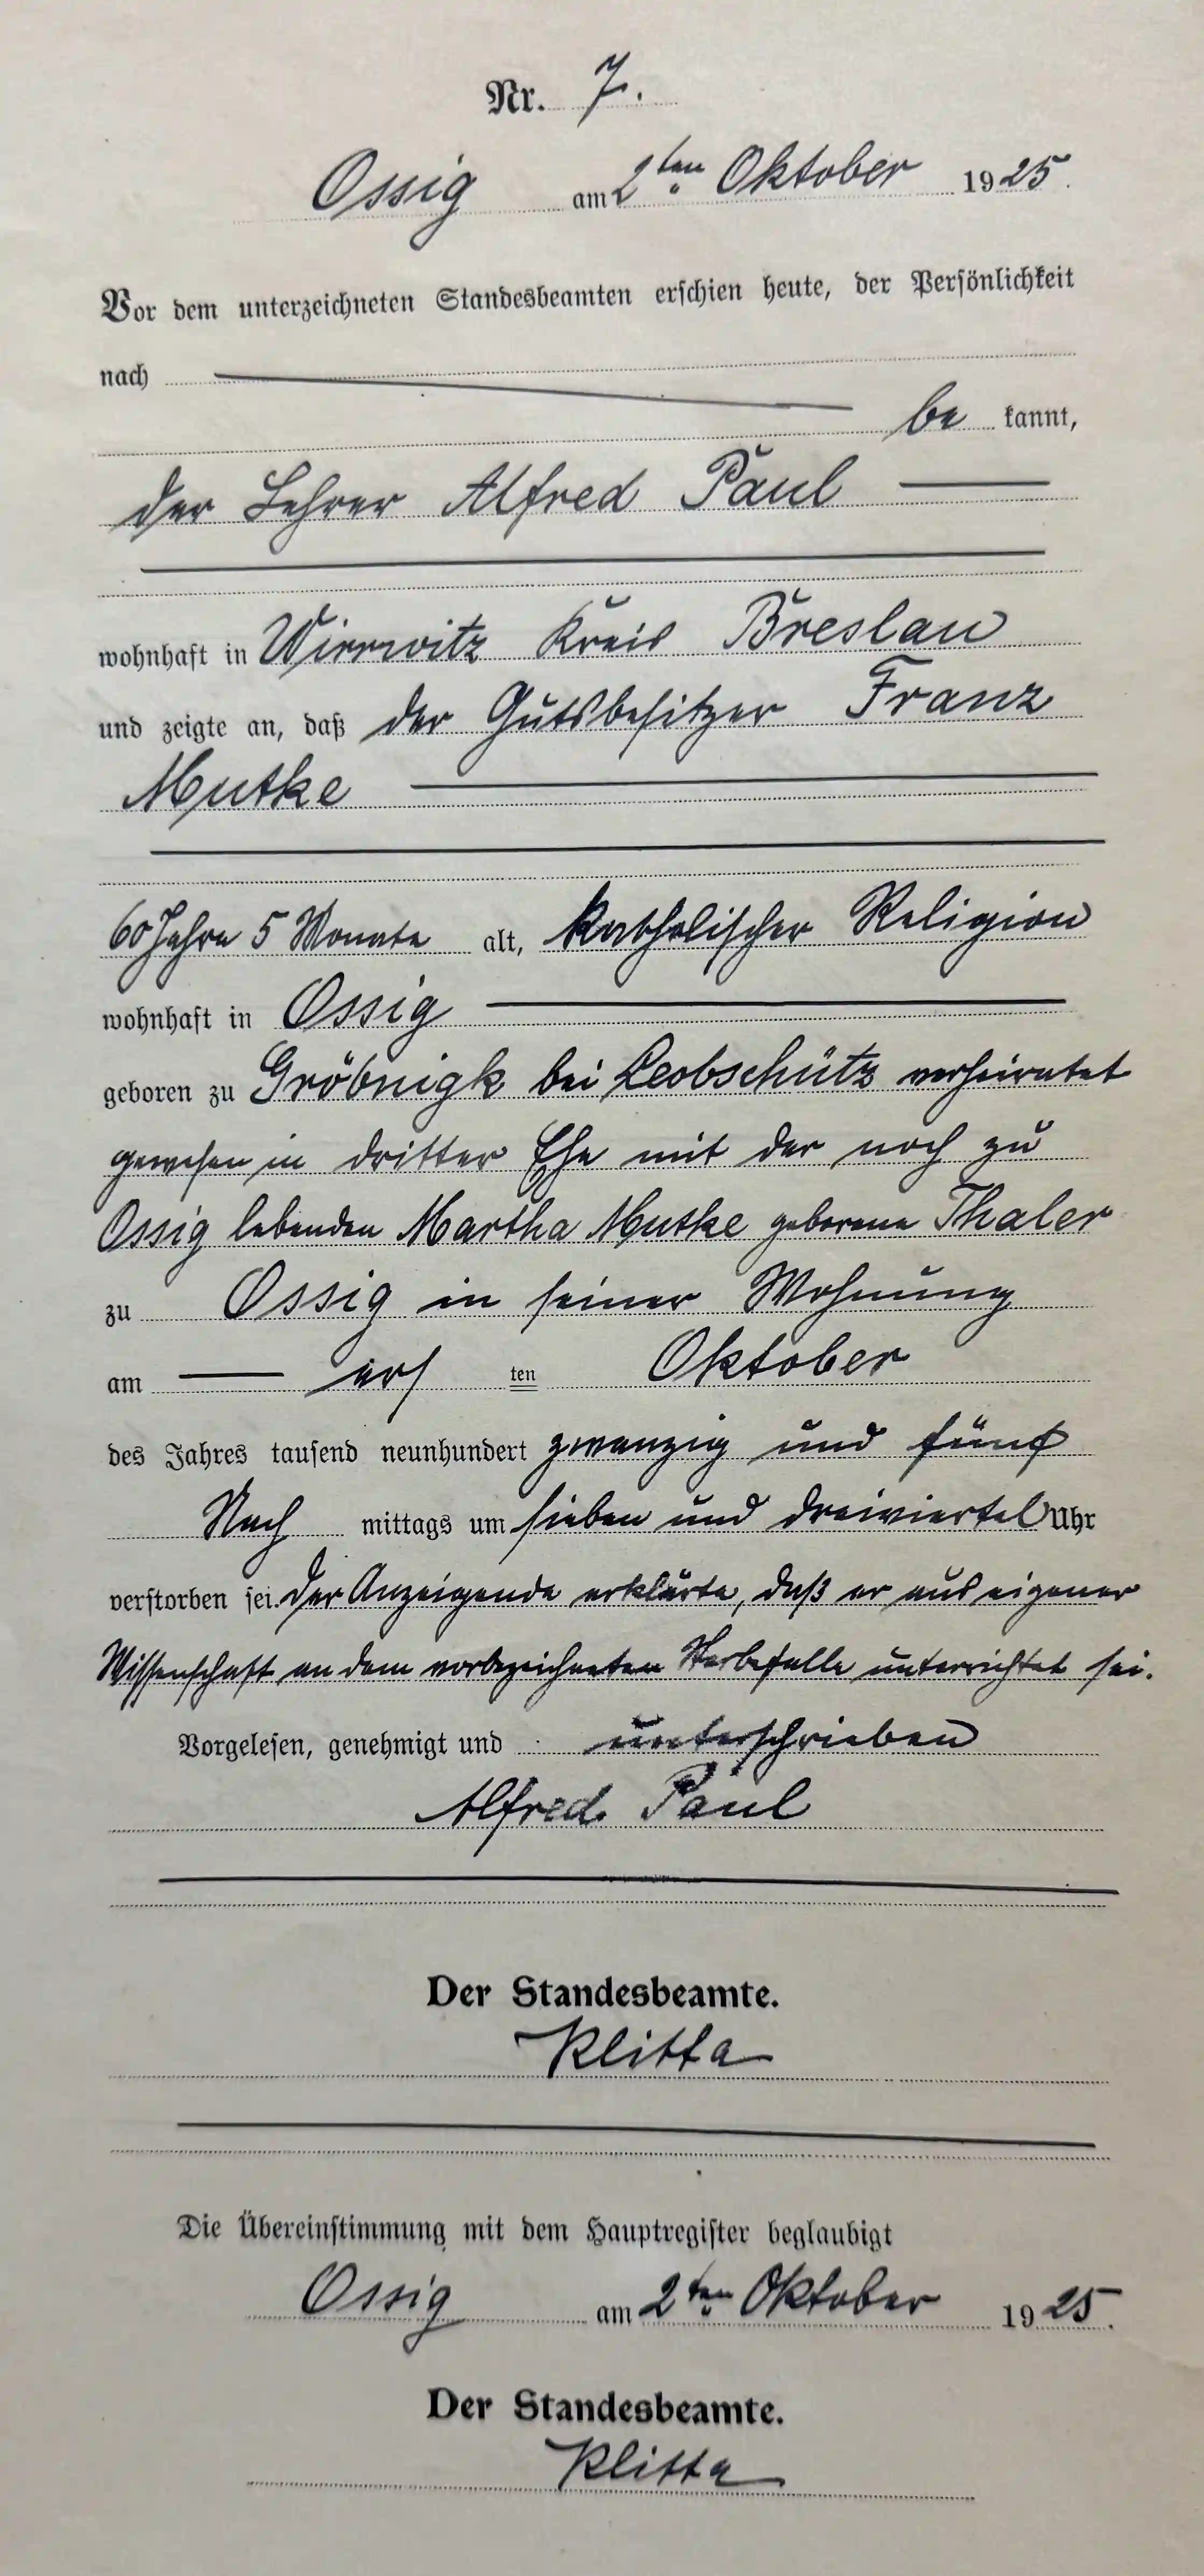 Nr. 7.
Ossig am 2ten Oktober 1925.
Vor dem unterzeichneten Standesbeamten erschien heute, der Persönlichkeit
nach
be kannt,
der Lehrer Alfred Paul
wohnhaft in Wirrwitz Kreis Breslau
und zeigte an, daß der Gutsbesitzer Franz
Mutke
60 Jahre 5 Monate alt, katholischer Religion
wohnhaft in Ossig
geboren zu Gröbnigk bei Leobschütz verheiratet
gewesen in dritter Ehe mit der noch zu
Ossig lebenden Martha Mutke geborene Thaler
zu Ossig in seiner Wohnung
am ersten Oktober
des Jahres tausend neunhundert zwanzig und fünf
Nach mittags um sieben und dreiviertel Uhr
verstorben sei. Der Anzeigende erklärte, daß er aus eigener
Wissenschaft an dem vorbezeichneten Sterbefalle unterrichtet sei.
Vorgelesen, genehmigt und unterschrieben
Alfred Paul
Der Standesbeamte.
Klitta
Die Übereinstimmung mit dem Hauptregister beglaubigt
Ossig am 2ten Oktober 1925.
Der Standesbeamte.
Klitta